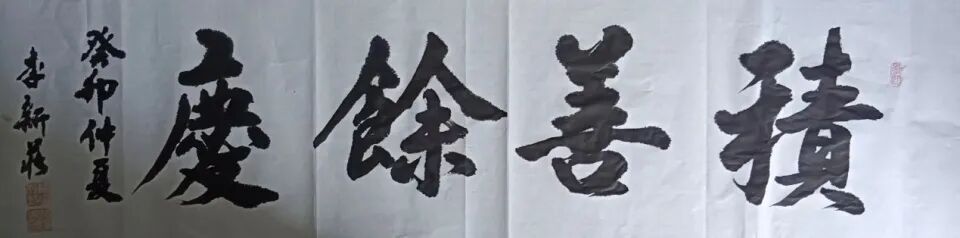 積善餘慶
癸卯仲夏
李新